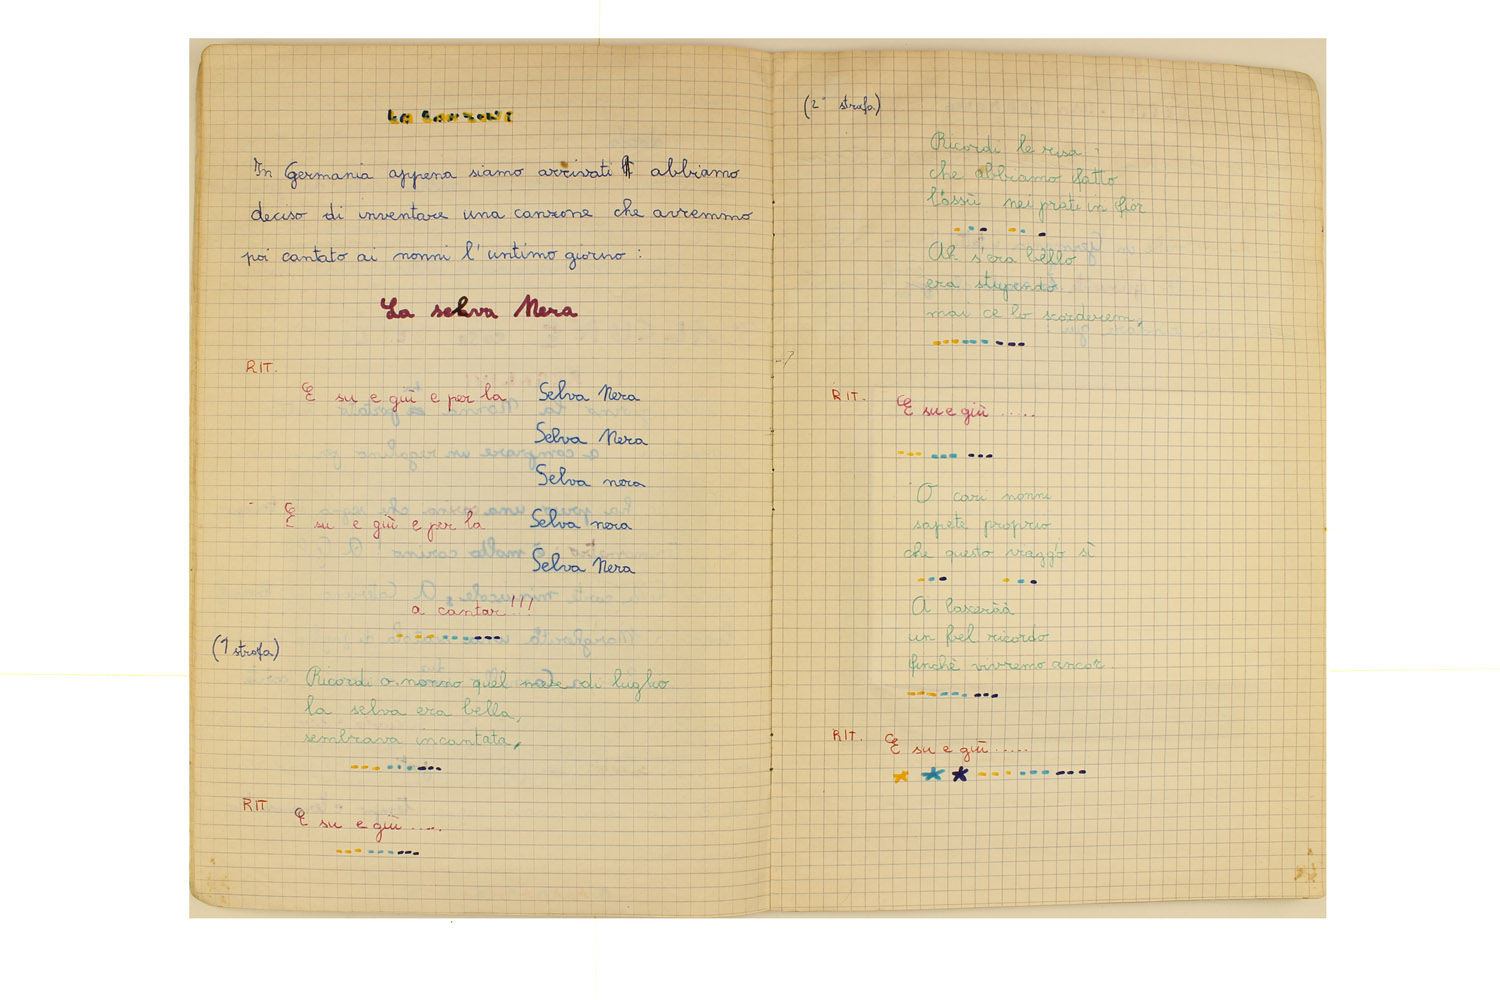 La canzone
In Germania appena siamo arrivati abbiamo
deciso di inventare una canzone che avremmo
poi cantato ai nonni l'untimo giorno :
La selva Nera
RIT.
E su e giù e per la Selva Nera
Selva Nera
Selva nera
E su e giù e per la Selva nera
Selva Nera
a cantar!!!
(1 strofa)
Ricordi o nonno quel mese di luglio
la selva era bella,
sembrava incantata,
RIT.
E su e giù .....
(2° strofa)
Ricordi le risa
che abbiamo fatto
lassù nei prati in fior
Ah s'era bello
era stupendo
mai ce lo scorderem,
RIT.
E su e giù .....
O cari nonni
sapete proprio
che questo viaggo sì
A lasceràà
un bel ricordo
finchè vivremo ancor.
RIT.
E su e giù .....